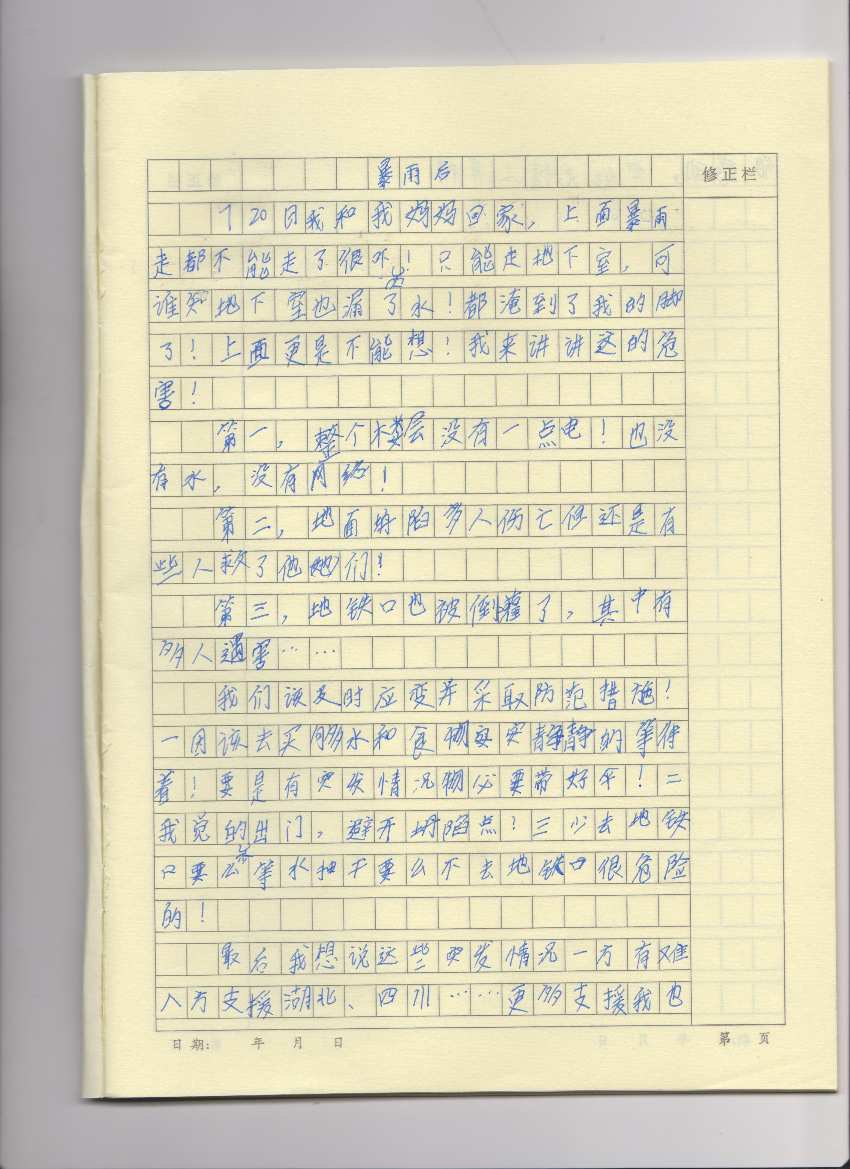 暴雨后
修正栏
720日我和我妈妈回家，上面暴雨
走都不能走了很外！只能走地下室，可
谁知地下室也漏了水！都淹到了我的脚
了！上面更是不能想！我来讲讲这的危
害！
第一，整个楼层没有一点电！也没
有水，没有网络！
第二，地面坍陷多人伤亡但还是有
些人救了他她们！
第三，地铁口也被倒灌了，其中有
多人遇害……
我们该及时应变并采取防范措施！
一因该去买够水和食物安安静静的等待
着！要是有突发情况物必要带好伞！二
我觉的出门，避开坍陷点！三少去地铁
口要么等水抽干要么不去地铁口很危险
的！
最后我想说这些突发情况一方有难
八方支援湖北、四川……更多支援我也
日期： 年 月 日 第 页